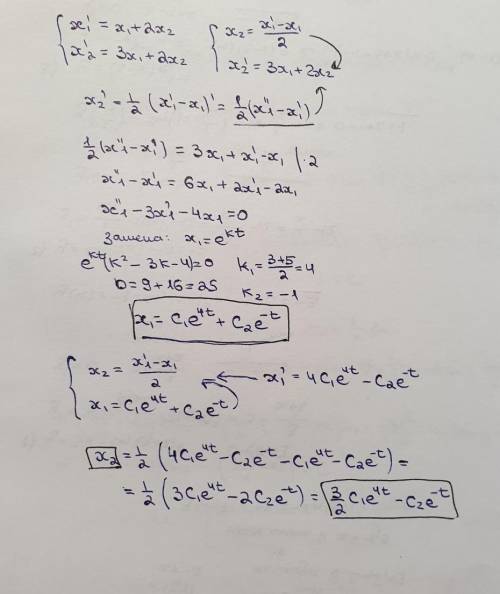 { x₁' = x₁ + 2x₂   { x₂ = (x₁' - x₁)/2
{ x₂' = 3x₁ + 2x₂   { x₂' = 3x₁ + 2x₂
x₂' = 1/2 (x₁' - x₁)' = 1/2 (x₁'' - x₁')
1/2 (x₁'' - x₁') = 3x₁ + x₁' - x₁ | ·2
x₁'' - x₁' = 6x₁ + 2x₁' - 2x₁
x₁'' - 3x₁' - 4x₁ = 0
замена: x₁ = e^{kt}
e^{kt}(k² - 3k - 4) = 0   k₁ = (3+5)/2 = 4
D = 9 + 16 = 25   k₂ = -1
x₁ = C₁e^{4t} + C₂e^{-t}
{ x₂ = (x₁' - x₁)/2 ← x₁' = 4C₁e^{4t} - C₂e^{-t}
{ x₁ = C₁e^{4t} + C₂e^{-t}
x₂ = 1/2 (4C₁e^{4t} - C₂e^{-t} - C₁e^{4t} - C₂e^{-t}) =
= 1/2 (3C₁e^{4t} - 2C₂e^{-t}) = 3/2 C₁e^{4t} - C₂e^{-t}